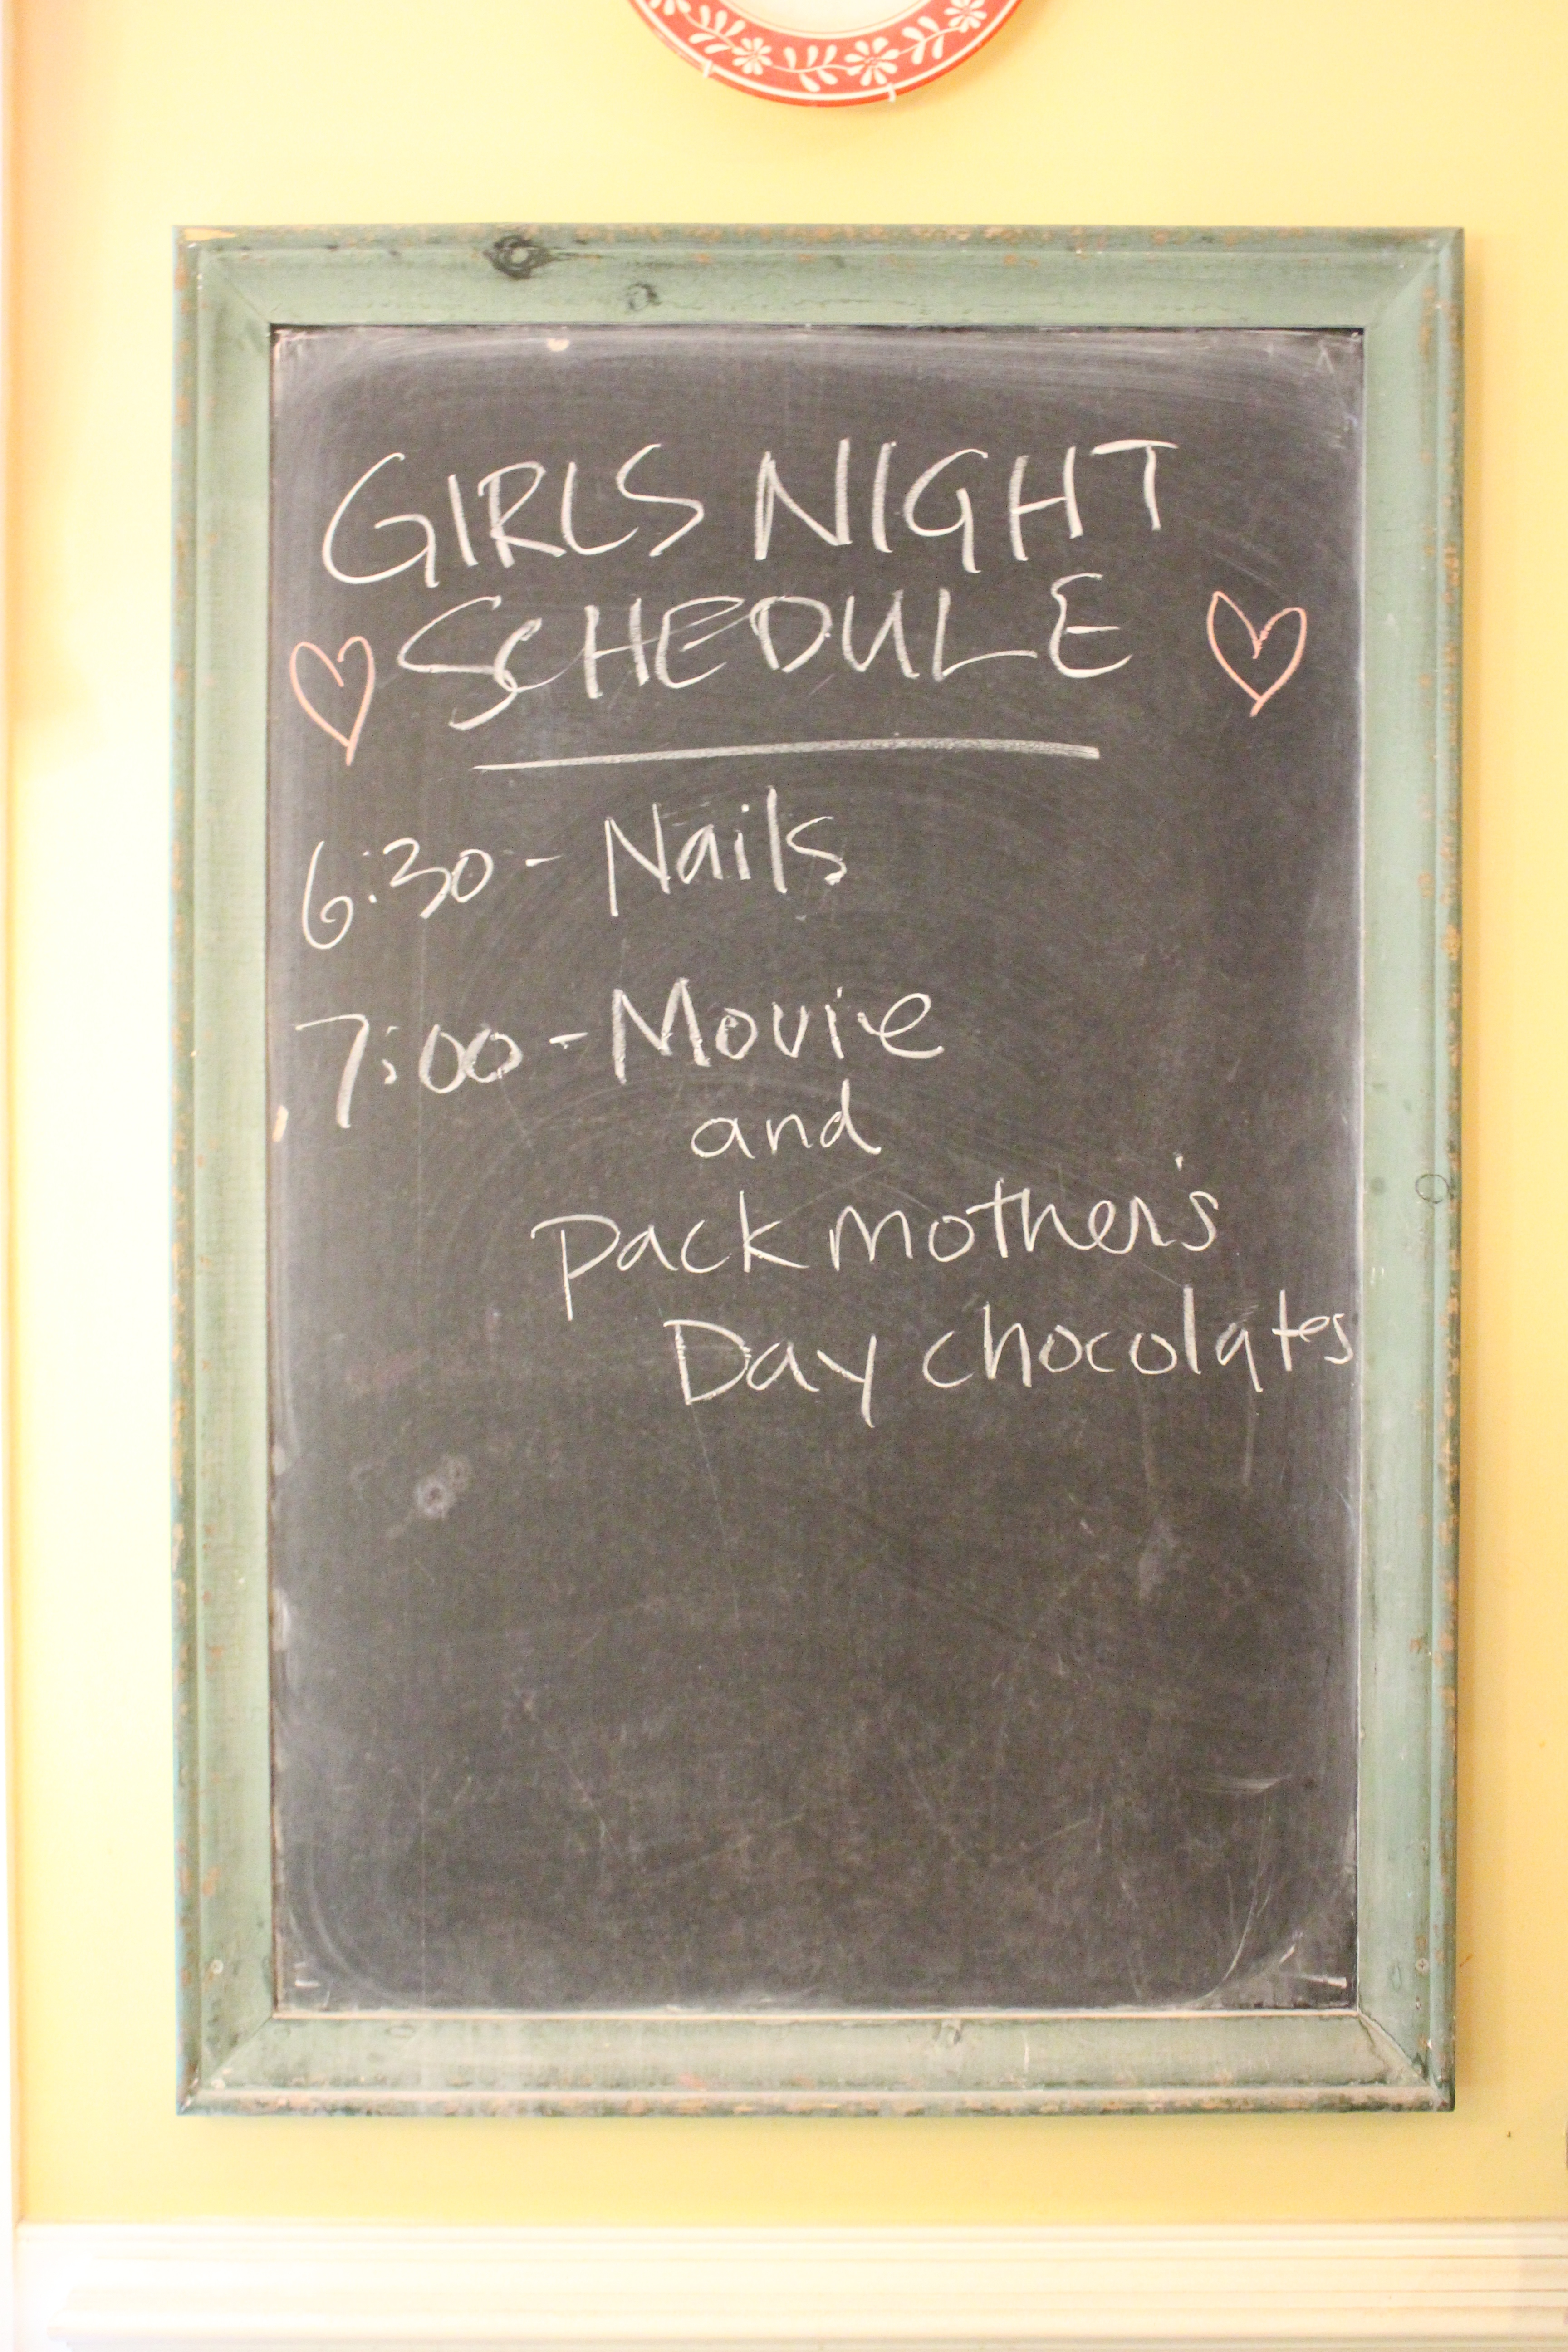 GIRLS NIGHT
SCHEDULE
6:30 - Nails
7:00 - Movie
and
pack mother's
Day chocolates